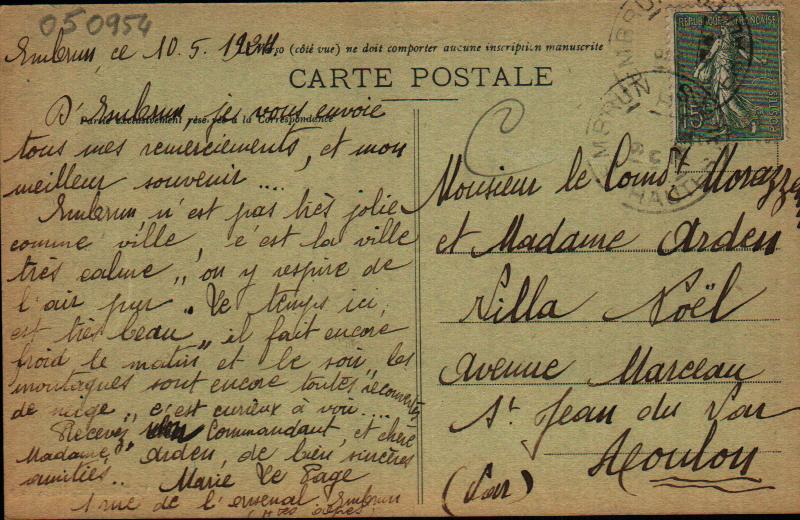 050954
Embrun, ce 10.5.1924
Le Verso (côté vue) ne doit comporter aucune inscription manuscrite
CARTE POSTALE
Partie exclusivement réservée à la Correspondance
D'Embrun, je vous envoie
tous mes remerciements, et mon
meilleur souvenir....
Embrun n'est pas très jolie
comme ville, c'est la ville
très calme,, on y respire de
l'air pur.. Le temps ici,
est très beau,, il fait encore
froid le matin,, et le soir,, les
montagnes sont encore toutes recouvertes
de neige,, c'est curieux à voir....
Recevez Commandant, et chère
Madame, Arden, de bien sincères
amitiés.. Marie Le Page
1 rue de l'arsenal Embrun
Htes alpes
REPUBLIQUE FRANÇAISE
POSTES
15c
EMBRUN
HAUTES
Monsieur le Comd Morazze
et Madame Arden
Villa Noël
Avenue Marceau
St Jean du Var
Toulon
(Var)